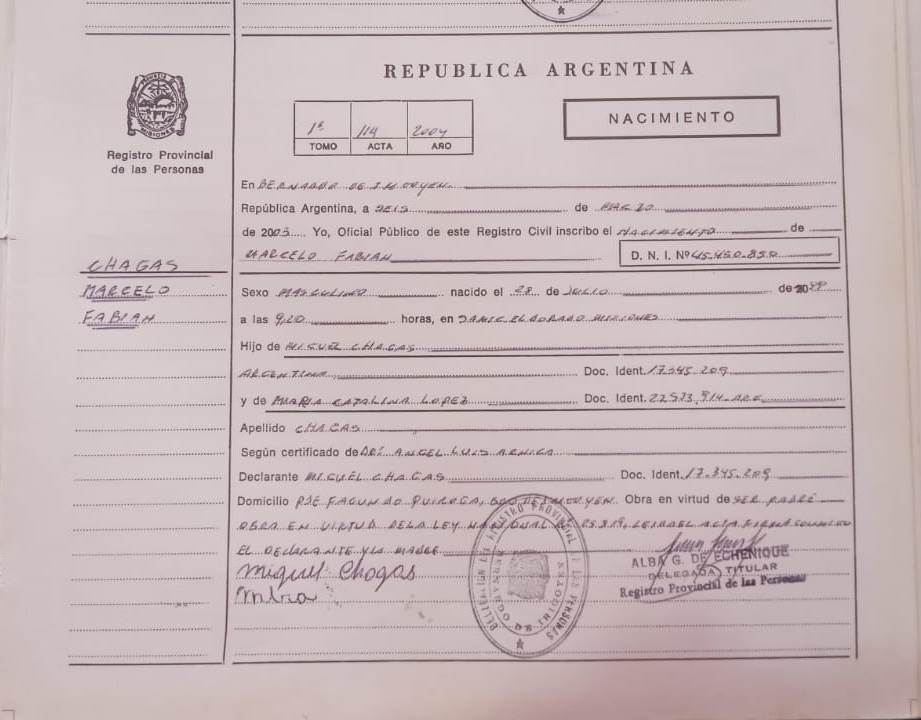 REPUBLICA ARGENTINA
MISIONES
Registro Provincial
de las Personas
1º 114 2004
TOMO ACTA AÑO
NACIMIENTO
En BERNARDO DE IRIGOYEN
República Argentina, a SEIS de MARZO
de 2003 Yo, Oficial Público de este Registro Civil inscribo el NACIMIENTO de
MARCELO FABIAN D. N. I. Nº 45.450.850
CHAGAS
MARCELO
FABIAN
Sexo MASCULINO nacido el 28 de JULIO de 20
a las 9,20 horas, en SAMIC ELDORADO MISIONES
Hijo de MIGUEL CHAGAS
ARGENTINO Doc. Ident. 17.345.209
y de MARIA CATALINA LOPEZ Doc. Ident. 22.573.914-ARG
Apellido CHAGAS
Según certificado de ANGEL LUIS
Declarante MIGUEL CHAGAS Doc. Ident. 17.345.209
Domicilio PJE FACUNDO QUIROGA, BDO DE IRIGOYEN. Obra en virtud de SER PADRE
OBRA EN VIRTUD DE LA LEY NACIONAL LEIDA EL ACTA FIRMA CONMIGO
EL DECLARANTE Y LA MADRE
Miguel Chagas
ALBA G. DE ECHENIQUE
DELEGADA TITULAR
Registro Provincial de las Personas
DELEGACION DE REGISTRO PROVINCIAL DE LAS PERSONAS
BERNARDO DE IRIGOYEN